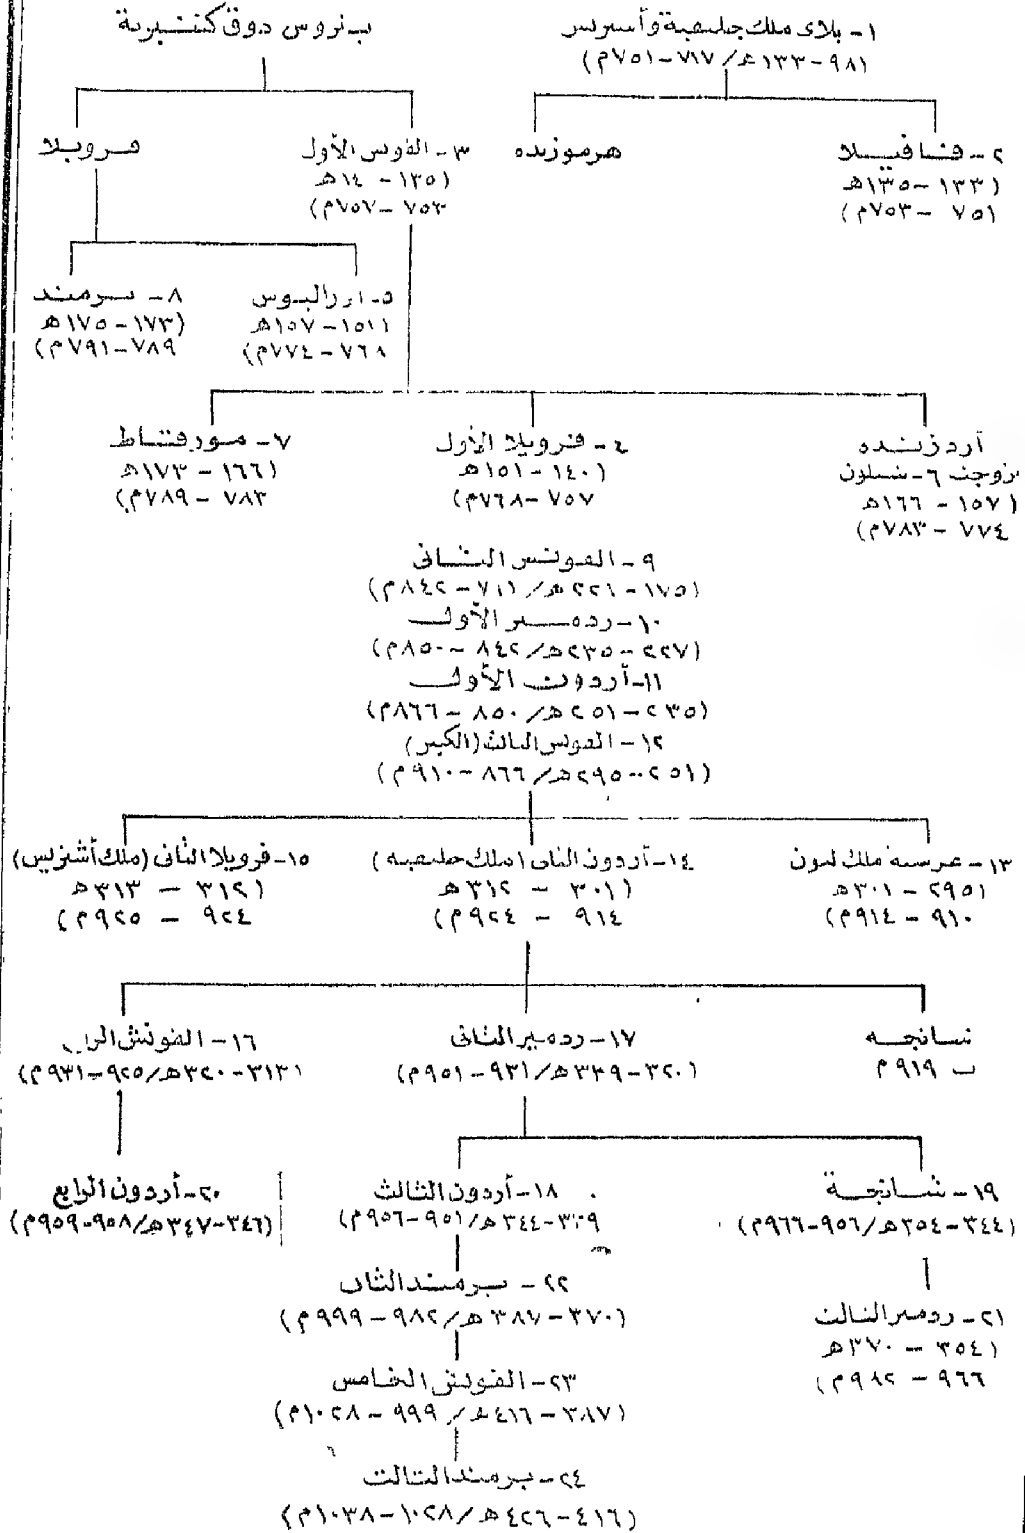 ١ - بلاى ملك جليقية وأستريس
(٩٨ - ١٣٣ هـ / ٧١٧ - ٧٥١م)
بتروس دوق كنتبرية
٢ - فافيلا
(١٣٣ - ١٣٥هـ
٧٥١ - ٧٥٣م)
هرموزنده
٣ - الفونس الأول
(١٣٥ - ١٤هـ
٧٥٣ - ٧٥٧م)
فرويلا
٥ - اورالیوس
١٥١ - ١٥٧هـ
٧٦٨ - ٧٧٤م)
٨ - برمند
(١٧٣ - ١٧٥هـ
٧٨٩ - ٧٩١م)
أردزنده
زوجت ٦ - شيلون
(١٥٧ - ١٦٦هـ
٧٧٤ - ٧٨٣م)
٤ - فرويلا الأول
(١٤٠ - ١٥١هـ
٧٥٧ - ٧٦٨م)
٧ - مورقاط
(١٦٦ - ١٧٣هـ
٧٨٣ - ٧٨٩م)
٩ - الفونس الثانى
(١٧٥ - ٢٢١هـ / ٧١١ - ٨٤٢م)
١٠ - ردمير الأول
(٢٢٧ - ٢٣٥هـ / ٨٤٢ - ٨٥٠م)
١١ - أردون الأول
(٢٣٥ - ٢٥١هـ / ٨٥٠ - ٨٦٦م)
١٢ - الفونس الثالث (الكبير)
(٢٥١ - ٢٩٥هـ / ٨٦٦ - ٩١٠م)
١٣ - غرسيه ملك ليون
(٢٩٥ - ٣٠١هـ
٩١٠ - ٩١٤م)
١٤ - أردون الثانى (ملك جليقيه)
(٣٠١ - ٣١٢هـ
٩١٤ - ٩٢٤م)
١٥ - فرويلا الثانى (ملك أشتريس)
(٣١٢ - ٣١٣هـ
٩٢٤ - ٩٢٥م)
سانجه
ت ٩١٩ م
١٧ - ردمير الثانى
(٣٢٠ - ٣٣٩هـ / ٩٣١ - ٩٥١م)
١٦ - الفونش الرابع
(٣١٣ - ٣٢٠هـ / ٩٢٥ - ٩٣١م)
١٩ - شانجة
(٣٤٤ - ٣٥٤هـ / ٩٥٦ - ٩٦٦م)
١٨ - أردون الثالث
٣٣٩ - ٣٤٤هـ / ٩٥١ - ٩٥٦م)
٢٠ - أردون الرابع
(٣٤٦ - ٣٤٧هـ / ٩٥٨ - ٩٥٩م)
٢١ - رومير الثالث
(٣٥٤ - ٣٧٠هـ
٩٦٦ - ٩٨٢م)
٢٢ - برمند الثانى
(٣٧٠ - ٣٨٧هـ / ٩٨٢ - ٩٩٩م)
٢٣ - الفونش الخامس
(٣٨٧ - ٤١٦هـ / ٩٩٩ - ١٠٢٨م)
٢٤ - برمند الثالث
(٤١٦ - ٤٢٦هـ / ١٠٢٨ - ١٠٣٨م)